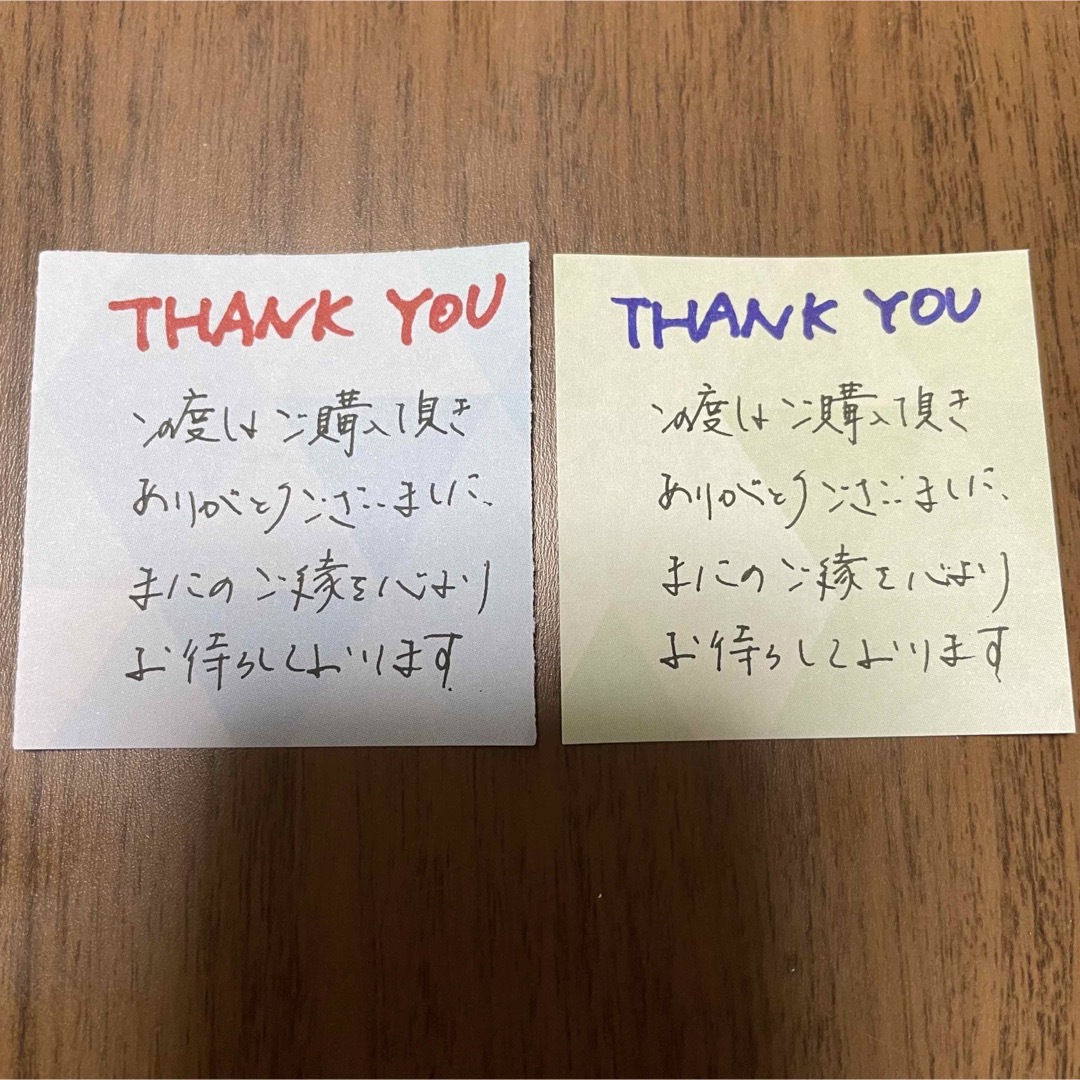 THANK YOU
この度はご購入頂き
ありがとうございました、
またのご縁を心より
お待ちしております
THANK YOU
この度はご購入頂き
ありがとうございました、
またのご縁を心より
お待ちしております